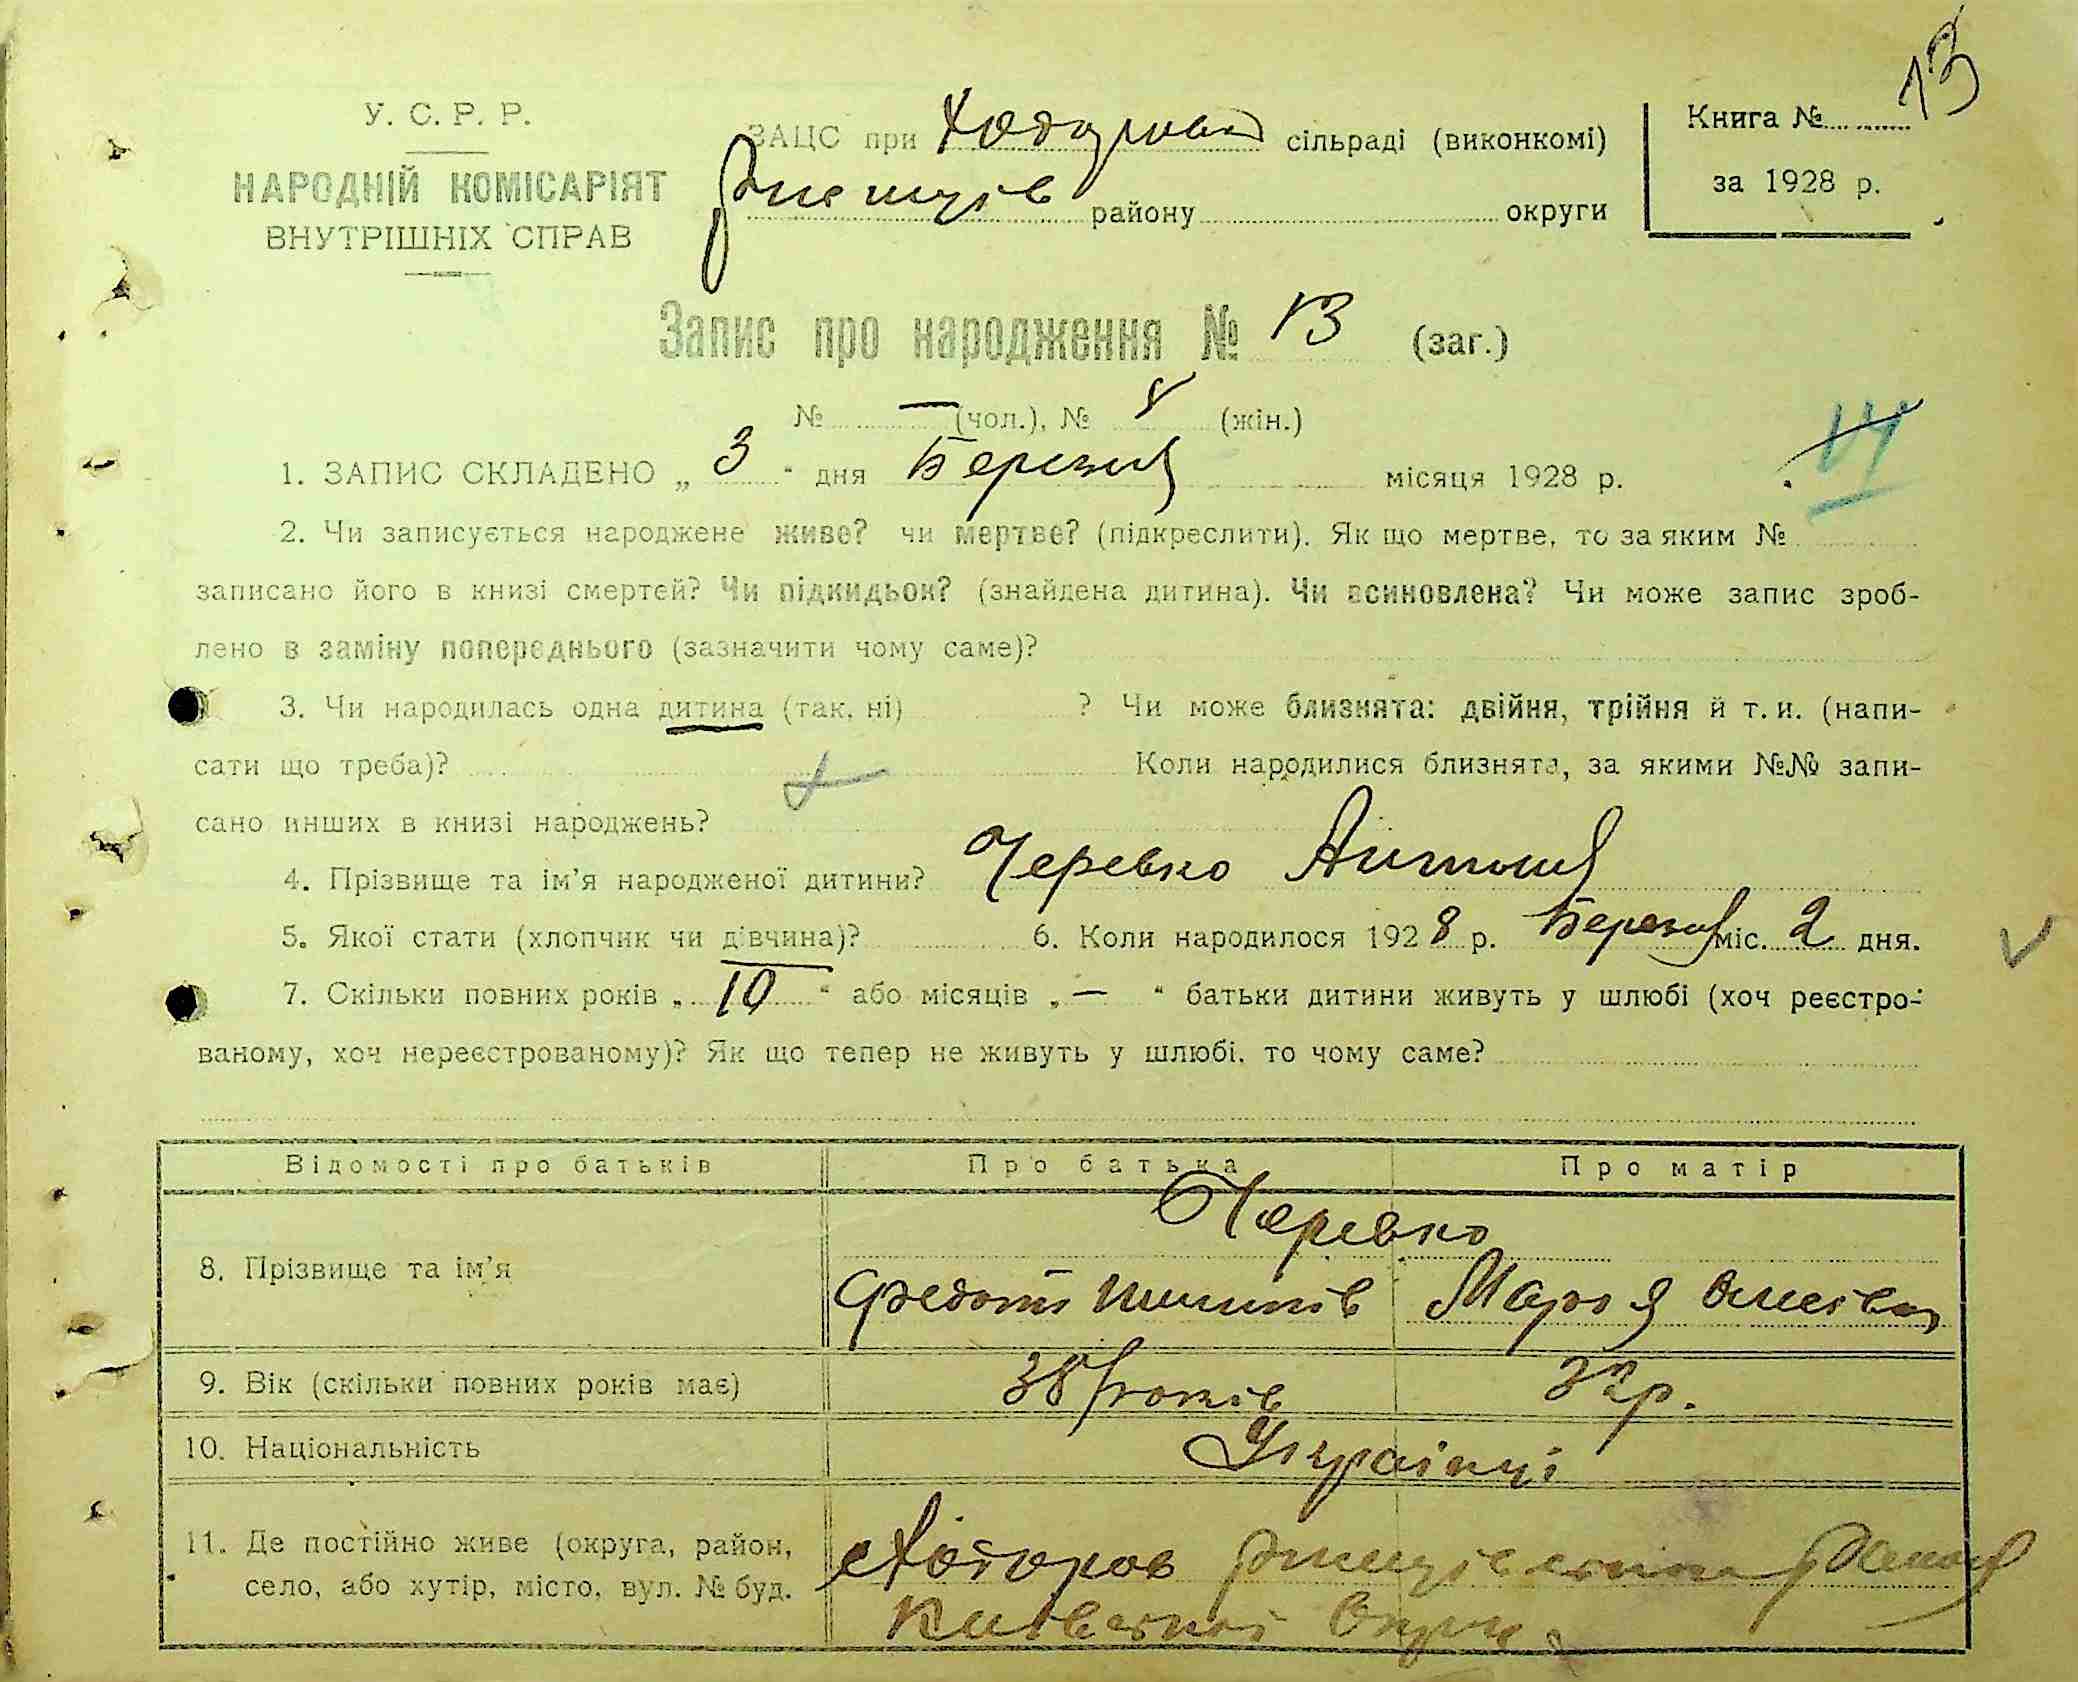 13
У. С. Р. Р.
НАРОДНІЙ КОМІСАРІЯТ
ВНУТРІШНІХ СПРАВ
ЗАЦС при Ходорові сільраді (виконкомі)
району округи
Книга №
за 1928 р.
Запис про народження № 13 (заг.)
№ — (чол.), № 8 (жін.)
1. ЗАПИС СКЛАДЕНО „ 3 “ дня Березня місяця 1928 р.
2. Чи записується народжене живе? чи мертве? (підкреслити). Як що мертве, то за яким №
записано його в книзі смертей? Чи підкидьок? (знайдена дитина). Чи всиновлена? Чи може запис зроб-
лено в заміну попереднього (зазначити чому саме)?
3. Чи народилась одна дитина (так, ні) ? Чи може близнята: двійня, трійня й т. и. (напи-
сати що треба)? Коли народилися близнята, за якими №№ запи-
сано инших в книзі народжень?
4. Прізвище та ім’я народженої дитини? Черевко Антонія
5. Якої стати (хлопчик чи дівчина)? 6. Коли народилося 1928 р. Березня міс. 2 дня.
7. Скільки повних років „ 10 “ або місяців „ — “ батьки дитини живуть у шлюбі (хоч реєстро-
ваному, хоч нереєстрованому)? Як що тепер не живуть у шлюбі, то чому саме?
Відомості про батьків Про батька Про матір
Черевко
8. Прізвище та ім’я Федот Марія
9. Вік (скільки повних років має) 38 років 32 р.
10. Національність Українці
11. Де постійно живе (округа, район, Ходоров
село, або хутір, місто, вул. № буд. Київської Округи